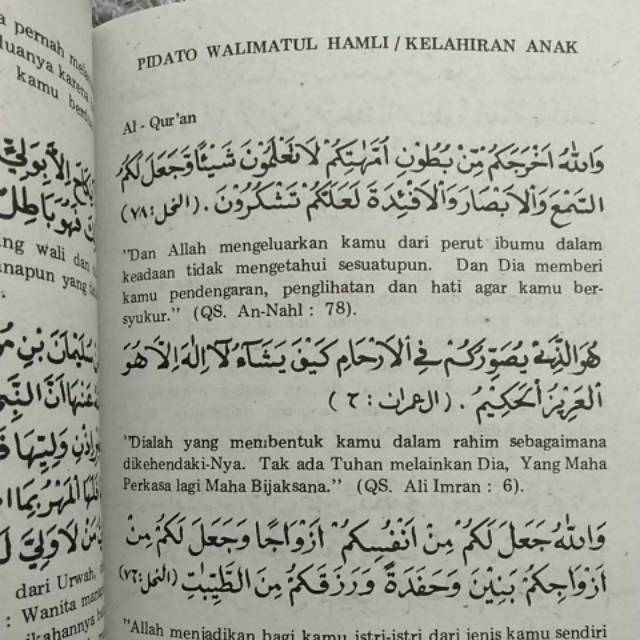 a pernah
luanya karena
kamu
ng wali dan
dari Urwah,
: Wanita
PIDATO WALIMATUL HAMLI / KELAHIRAN ANAK
Al - Qur'an
وَاللهُ اَخْرَجَكُمْ مِّنْ بُطُوْنِ اُمَّهٰتِكُمْ لَا تَعْلَمُوْنَ شَيْئًا وَّجَعَلَ لَكُمُ
السَّمْعَ وَالْاَبْصَارَ وَالْاَفْئِدَةَ لَعَلَّكُمْ تَشْكُرُوْنَ . (النحل : ٧٨)
"Dan Allah mengeluarkan kamu dari perut ibumu dalam
keadaan tidak mengetahui sesuatupun. Dan Dia memberi
kamu pendengaran, penglihatan dan hati agar kamu ber-
syukur." (QS. An-Nahl : 78).
هُوَ الَّذِيْ يُصَوِّرُكُمْ فِى الْاَرْحَامِ كَيْفَ يَشَآءُ لَآ اِلٰهَ اِلَّا هُوَ
الْعَزِيْزُ الْحَكِيْمُ . (ال عمران : ٦)
"Dialah yang membentuk kamu dalam rahim sebagaimana
dikehendaki-Nya. Tak ada Tuhan melainkan Dia, Yang Maha
Perkasa lagi Maha Bijaksana." (QS. Ali Imran : 6).
وَاللهُ جَعَلَ لَكُمْ مِنْ اَنْفُسِكُمْ اَزْوَاجًا وَجَعَلَ لَكُمْ مِنْ
اَزْوَاجِكُمْ بَنِيْنَ وَحَفَدَةً وَرَزَقَكُمْ مِنَ الطَّيِّبٰتِ (النحل : ٧٢)
"Allah menjadikan bagi kamu istri-istri dari jenis kamu sendiri